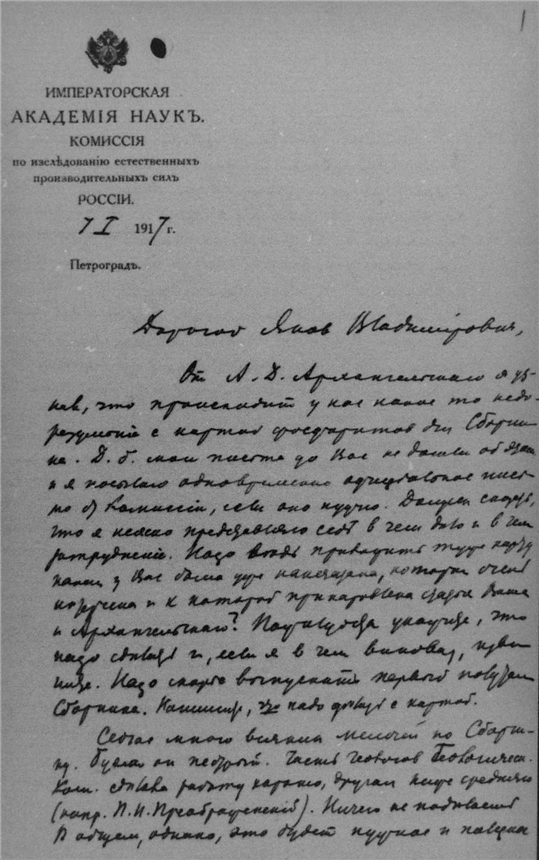 1
ИМПЕРАТОРСКАЯ
АКАДЕМІЯ НАУКЪ.
КОМИССІЯ
по изслѣдованію естественныхъ
производительныхъ силъ
РОССІИ.
7 I 1917 г.
Петроградъ.
Дорогой Яков Владимірович,
От А. Д. Архангельскаго я уз-
нав, что происходит у нас какое то недо-
разумѣніе с картой фосфоритов для Сборни-
ка. Д. б. мои письма до Вас не дошли об
и я посылаю одновременно офиціальное пись-
мо от Комиссіи, если оно нужно. Должен сказать,
что я неясно представляю себѣ в чем дѣло и в чем
затрудненіе. Надо вѣдь приводить ту же карту
какая у Вас была уже напечатана, которая очень
хороша и к которой приноровлена статья Ваша
и Архангельскаго? Пожалуйста укажите, что
надо сдѣлать и, если я в чем виноват, изви-
ните. Надо скорѣе выпускать первый
Сборника. Напишите, что надо дѣлать с картой.
Сейчас много всяких мелочей по Сборни-
ку. Будет он пестрый. Часть геологов Геологическ.
Ком. сдѣлала работу хорошо, другая ниже средняго
(напр. П. И. Преображенскій). Ничего не подѣлаешь
В общем, однако, это будет нужное и полезное